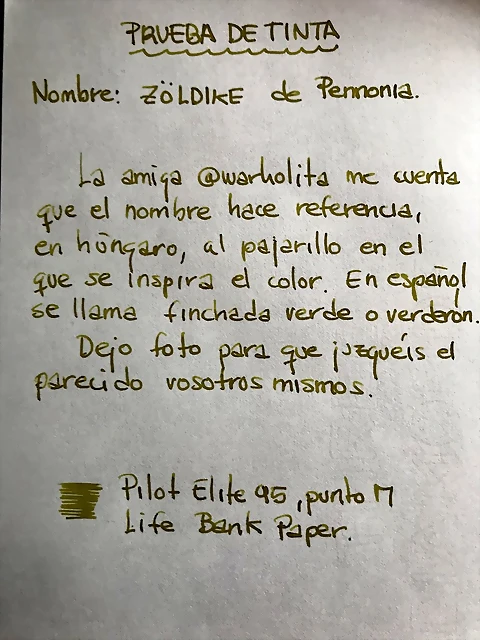 PRUEBA DE TINTA
Nombre: ZÖLDIKE de Pennonia.
La amiga @warholita me cuenta
que el nombre hace referencia,
en húngaro, al pajarillo en el
que se inspira el color. En español
se llama finchada verde o verderón.
Dejo foto para que juzguéis el
parecido vosotros mismos.
Pilot Elite 95, punto M
Life Bank Paper.